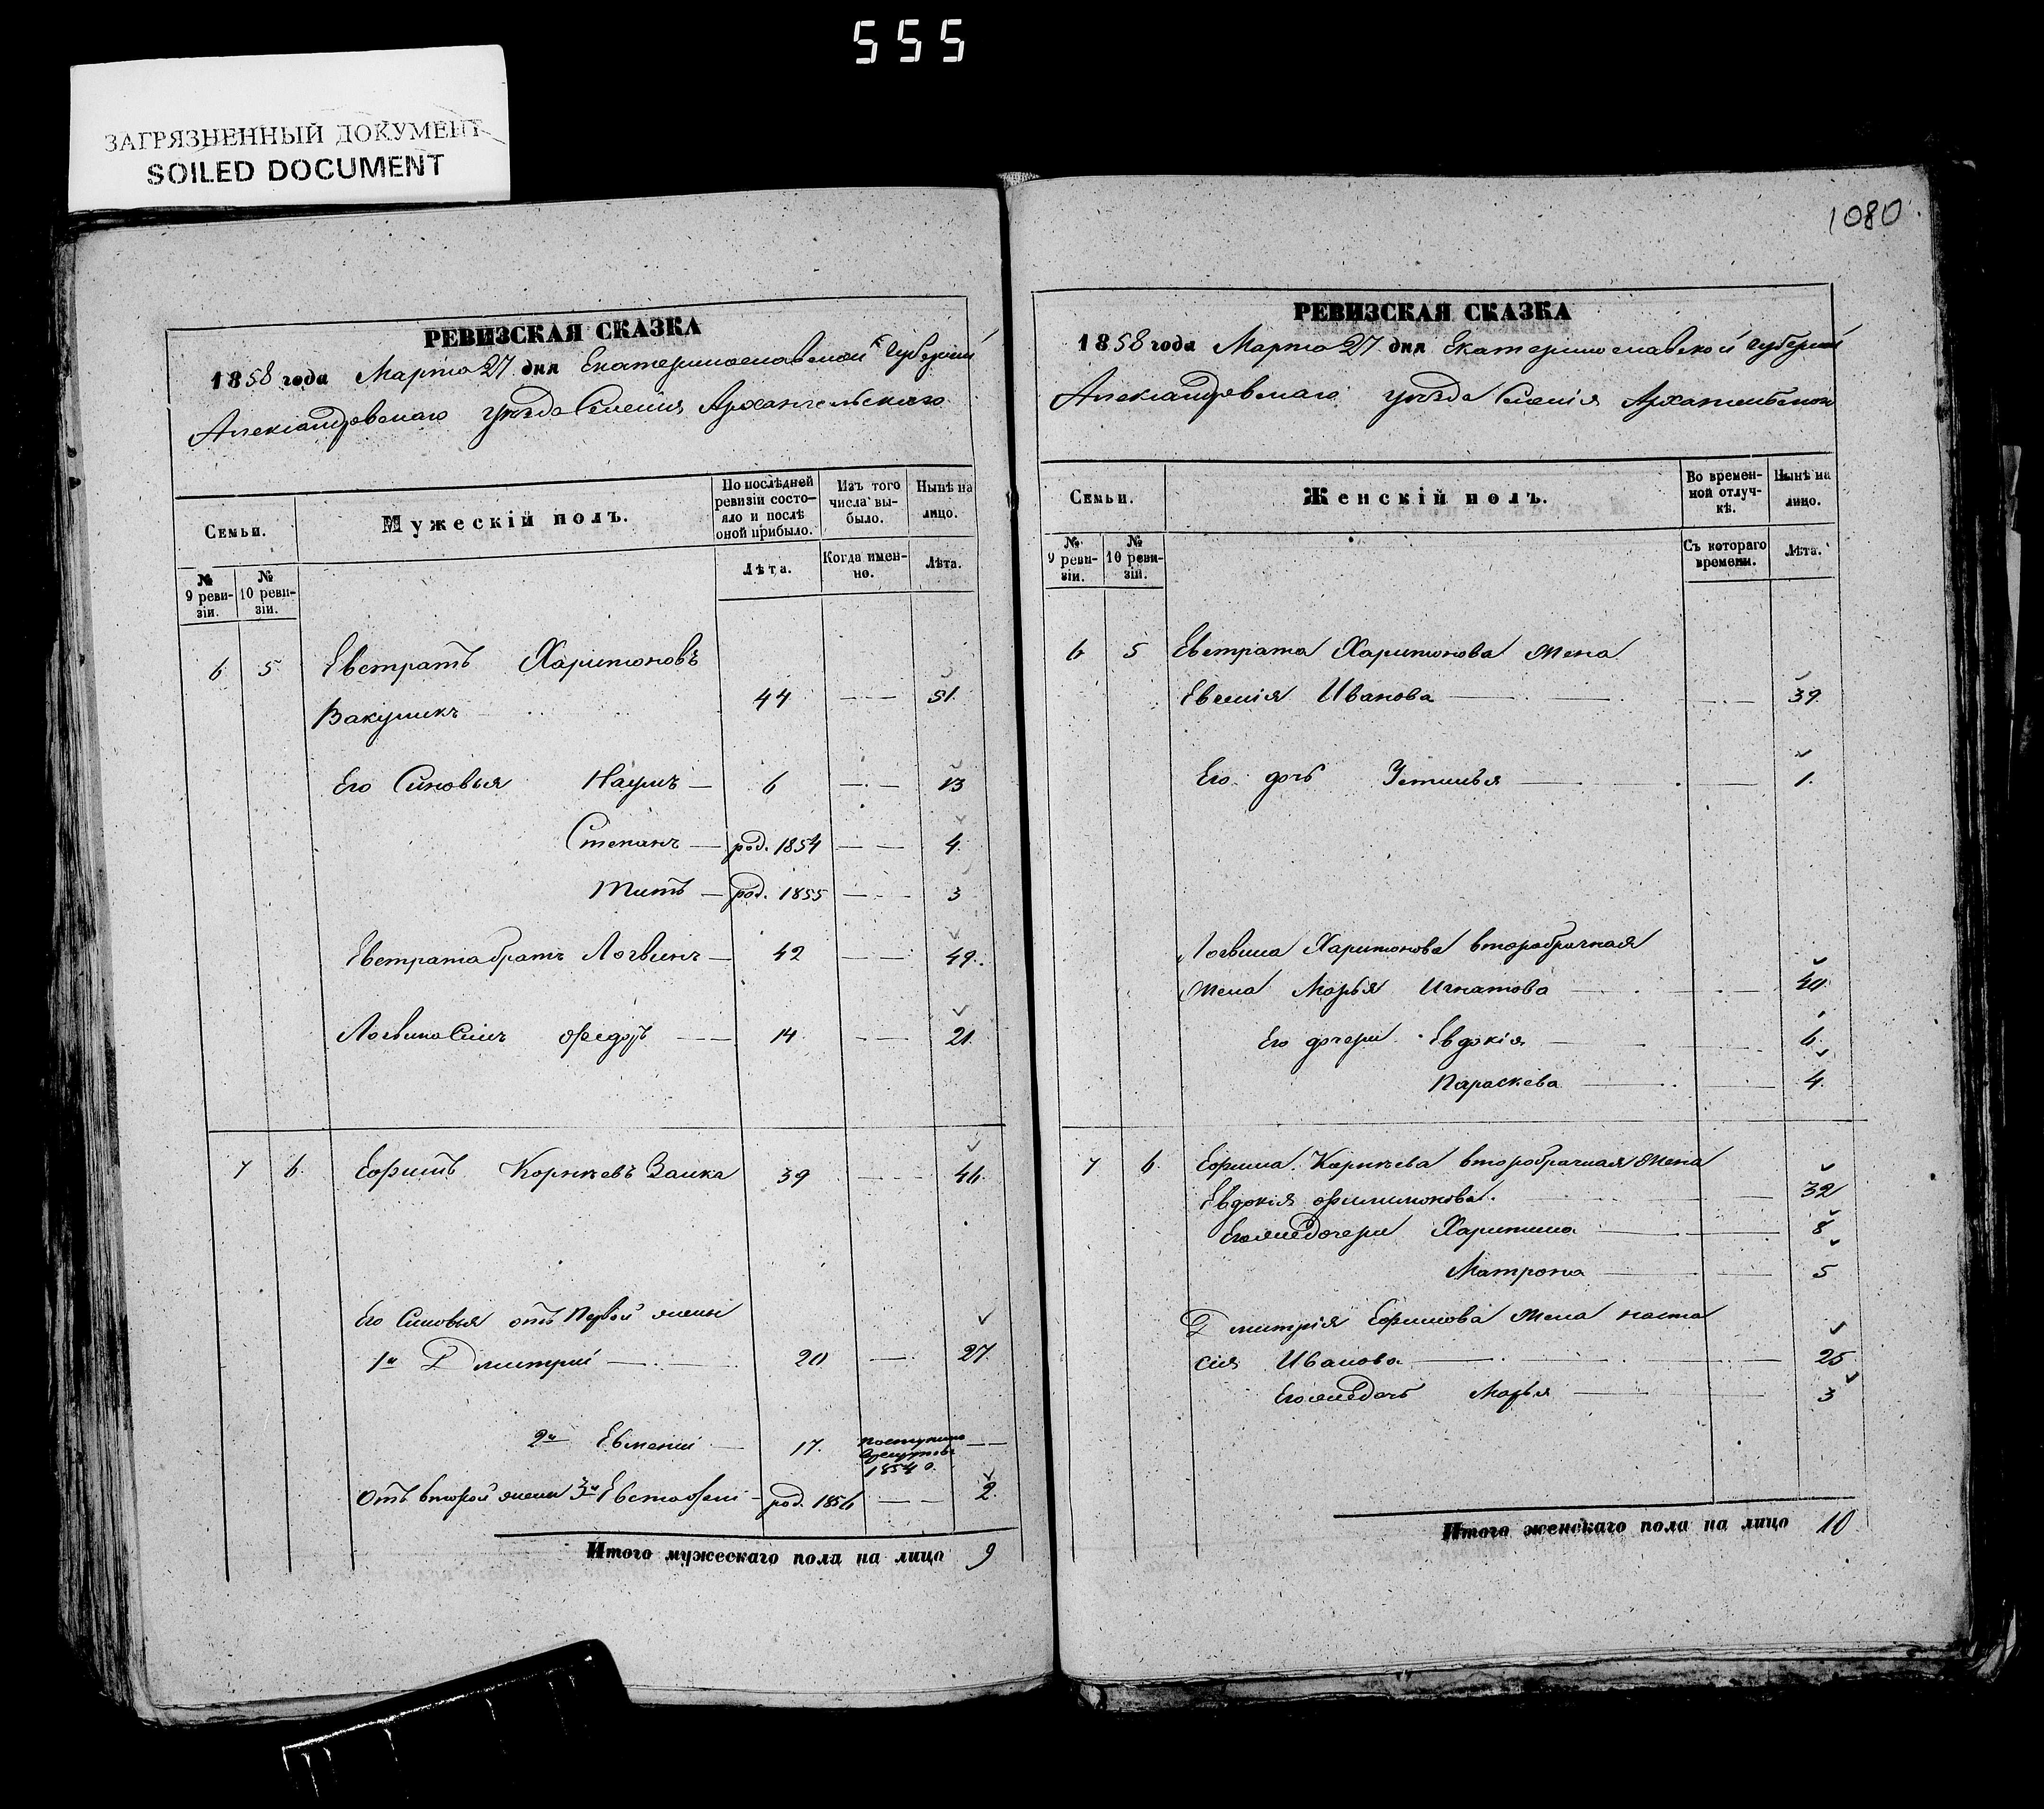 555
ЗАГРЯЗНЕННЫЙ ДОКУМЕНТ
SOILED DOCUMENT
РЕВИЗСКАЯ СКАЗКА
1858 года Марта 27 дня Екатеринославской Губерніи
Александровскаго уѣзда Селенія Архангельскаго
Семьи.
Мужескій полъ.
По послѣдней ревизіи состояло и послѣ оной прибыло.
Изъ того числа выбыло.
Нынѣ на лицо.
№ 9 ревизіи.
№ 10 ревизіи.
Лѣта.
Когда именно.
Лѣта.
6 5 Евстратъ Харитоновъ
Вакуликъ 44 — — 51.
Его Синовья Наумъ — 6 — — 13
Степанъ — род. 1854 — — 4.
Титъ — род. 1855 — — 3
Евстрата братъ Логвинъ — 42 — — 49.
Логвина Синъ Федоръ — — 14 — — 21.
7 6. Ефимъ Корнѣевъ Заика 39 — — 46.
Его Синовья отъ Первой жены
1й Дмитрій — 20 — 27.
2й Евменій — 17. поступилъ
1854 — —
Отъ второй жены 3й Евстафій — род. 1856 — — 2.
Итого мужескаго пола на лицо 9
1080
РЕВИЗСКАЯ СКАЗКА
1858 года Марта 27 дня Екатеринославской Губерніи
Александровскаго уѣзда Селенія Архангельскаго
Семьи.
Женскій полъ.
Во временной отлучкѣ.
Нынѣ на лицо.
№ 9 ревизіи.
№ 10 ревизіи.
Съ котораго времени.
Лѣта.
6 5 Евстрата Харитонова жена
Евгенія Иванова — 39
Его дочь Устинья — 1.
Логвина Харитонова второбрачная
жена Марья Игнатова — 40
Его дочери Евдокія — 6.
Параскева — 4.
7 6. Ефима Корнѣева второбрачная жена
Евдокія Филимонова. — 32
Его же дочери Харитина — 8
Матрона — 5
Дмитрія Ефимова жена наста
сія Иванова — 25
Его же дочь Марья — 3
Итого женскаго пола на лицо 10